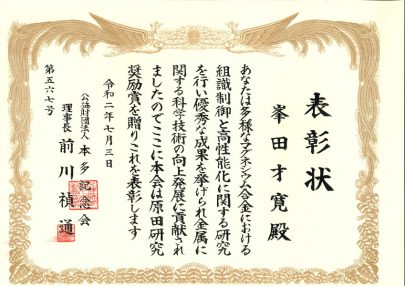 表彰状
峯田才寛殿
あなたは多様なマグネシウム合金における
組識制御と高性能化に関する研究
を行い優秀な成果を挙げられ金属に
関する科学技術の向上発展に貢献され
ましたのでここに本会は原田研究
奨励賞を贈りこれを表彰します
令和二年七月三日
公益財団法人 本多記念会
理事長 前川禎通
第五六七号